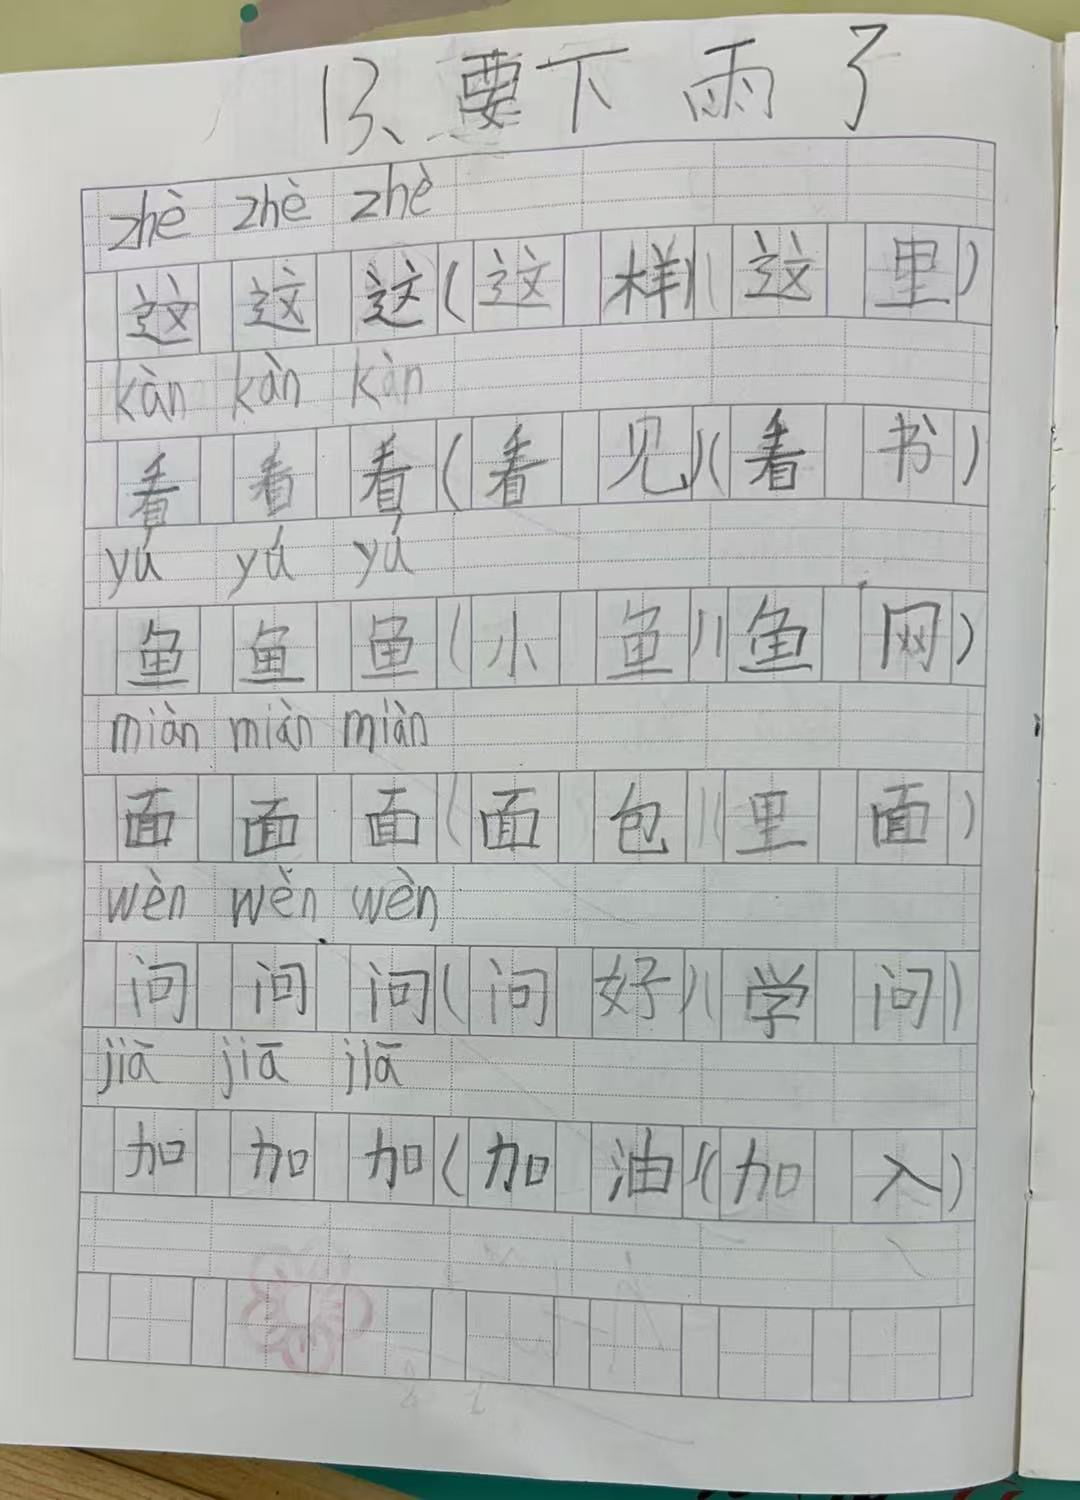 13、要下雨了
zhè zhè zhè
这 这 这(这样)(这里)
kàn kàn kàn
看 看 看(看见)(看书)
yú yú yú
鱼 鱼 鱼(小鱼)(鱼网)
miàn miàn miàn
面 面 面(面包)(里面)
wèn wèn wèn
问 问 问(问好)(学问)
jiā jiā jiā
加 加 加(加油)(加入)